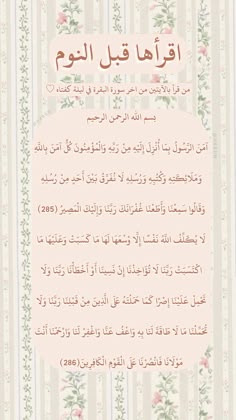 اقرأها قبل النوم
من قرأ بالآيتين من اخر سورة البقرة في ليلة كفتاه ♡
بسم الله الرحمن الرحيم
آمَنَ الرَّسُولُ بِمَا أُنْزِلَ إِلَيْهِ مِنْ رَبِّهِ وَالْمُؤْمِنُونَ كُلٌّ آمَنَ بِاللَّهِ
وَمَلَائِكَتِهِ وَكُتُبِهِ وَرُسُلِهِ لَا نُفَرِّقُ بَيْنَ أَحَدٍ مِنْ رُسُلِهِ
وَقَالُوا سَمِعْنَا وَأَطَعْنَا غُفْرَانَكَ رَبَّنَا وَإِلَيْكَ الْمَصِيرُ (285)
لَا يُكَلِّفُ اللَّهُ نَفْسًا إِلَّا وُسْعَهَا لَهَا مَا كَسَبَتْ وَعَلَيْهَا مَا
اكْتَسَبَتْ رَبَّنَا لَا تُؤَاخِذْنَا إِنْ نَسِينَا أَوْ أَخْطَأْنَا رَبَّنَا وَلَا
تَحْمِلْ عَلَيْنَا إِصْرًا كَمَا حَمَلْتَهُ عَلَى الَّذِينَ مِنْ قَبْلِنَا رَبَّنَا وَلَا
تُحَمِّلْنَا مَا لَا طَاقَةَ لَنَا بِهِ وَاعْفُ عَنَّا وَاغْفِرْ لَنَا وَارْحَمْنَا أَنْتَ
مَوْلَانَا فَانْصُرْنَا عَلَى الْقَوْمِ الْكَافِرِينَ (286)